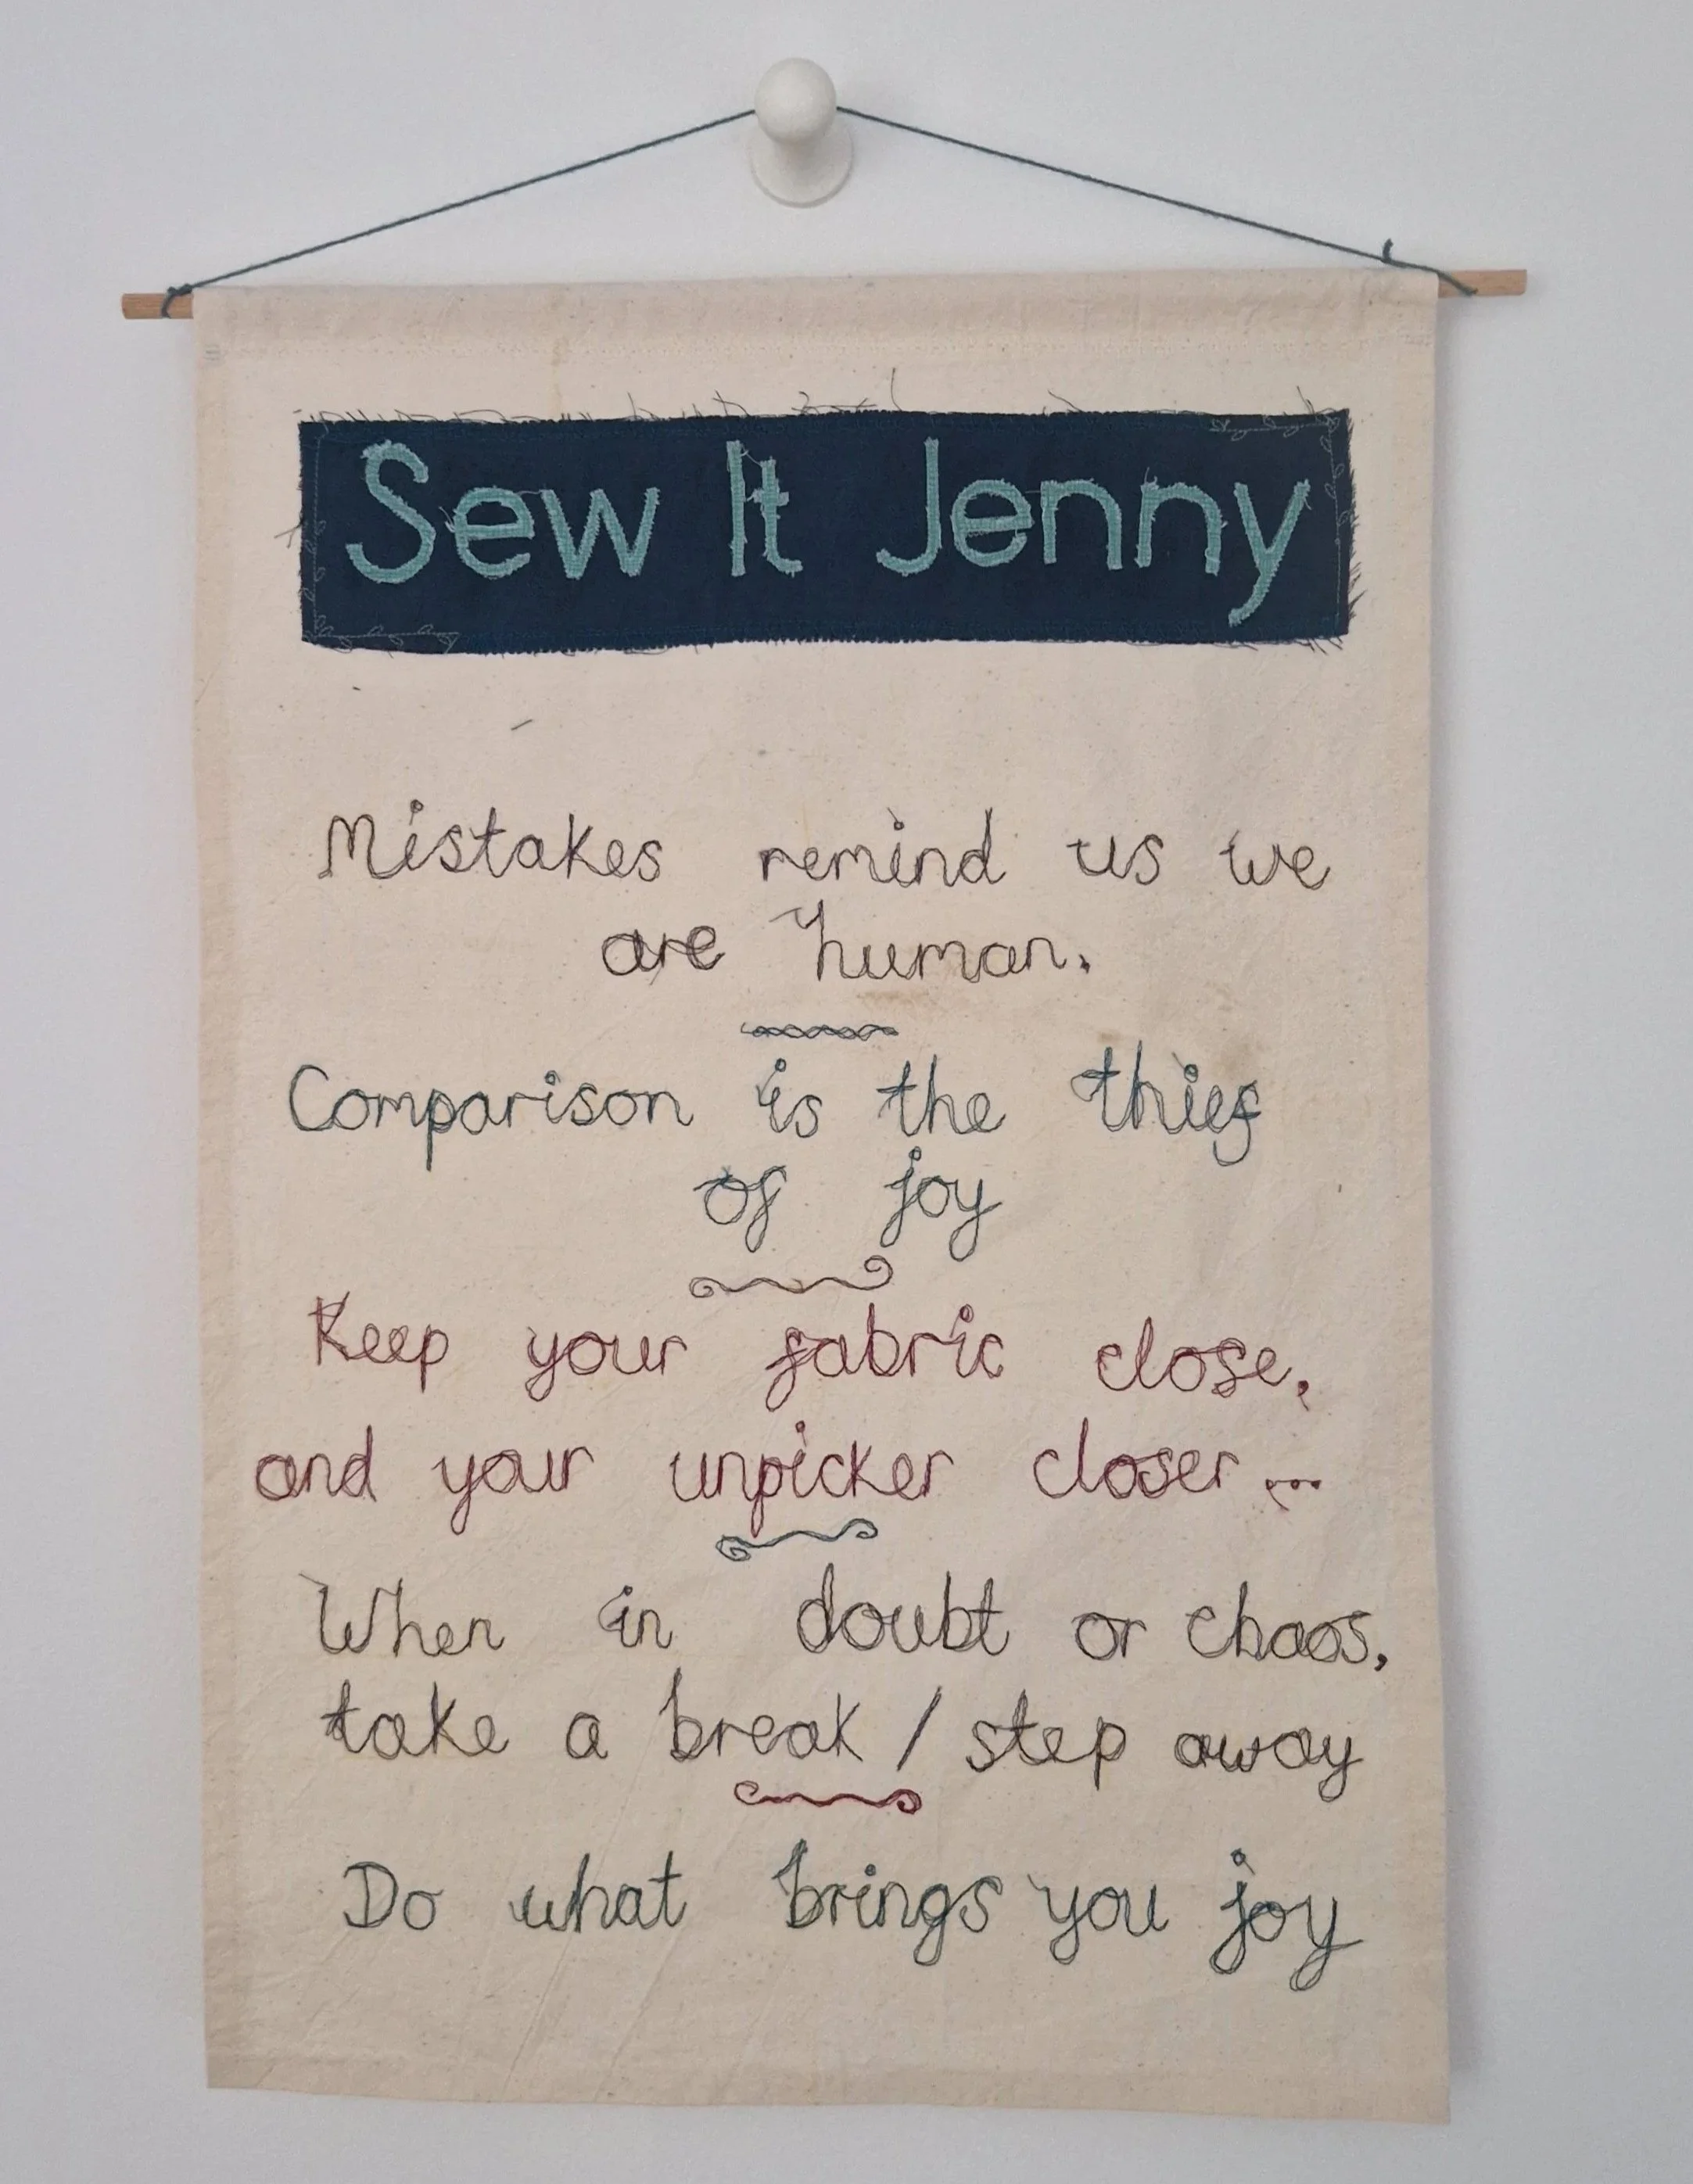 Sew It Jenny
Mistakes remind us we
are human.
Comparison is the thief
of joy
Keep your fabric close,
and your unpicker closer...
When in doubt or chaos,
take a break / step away
Do what brings you joy